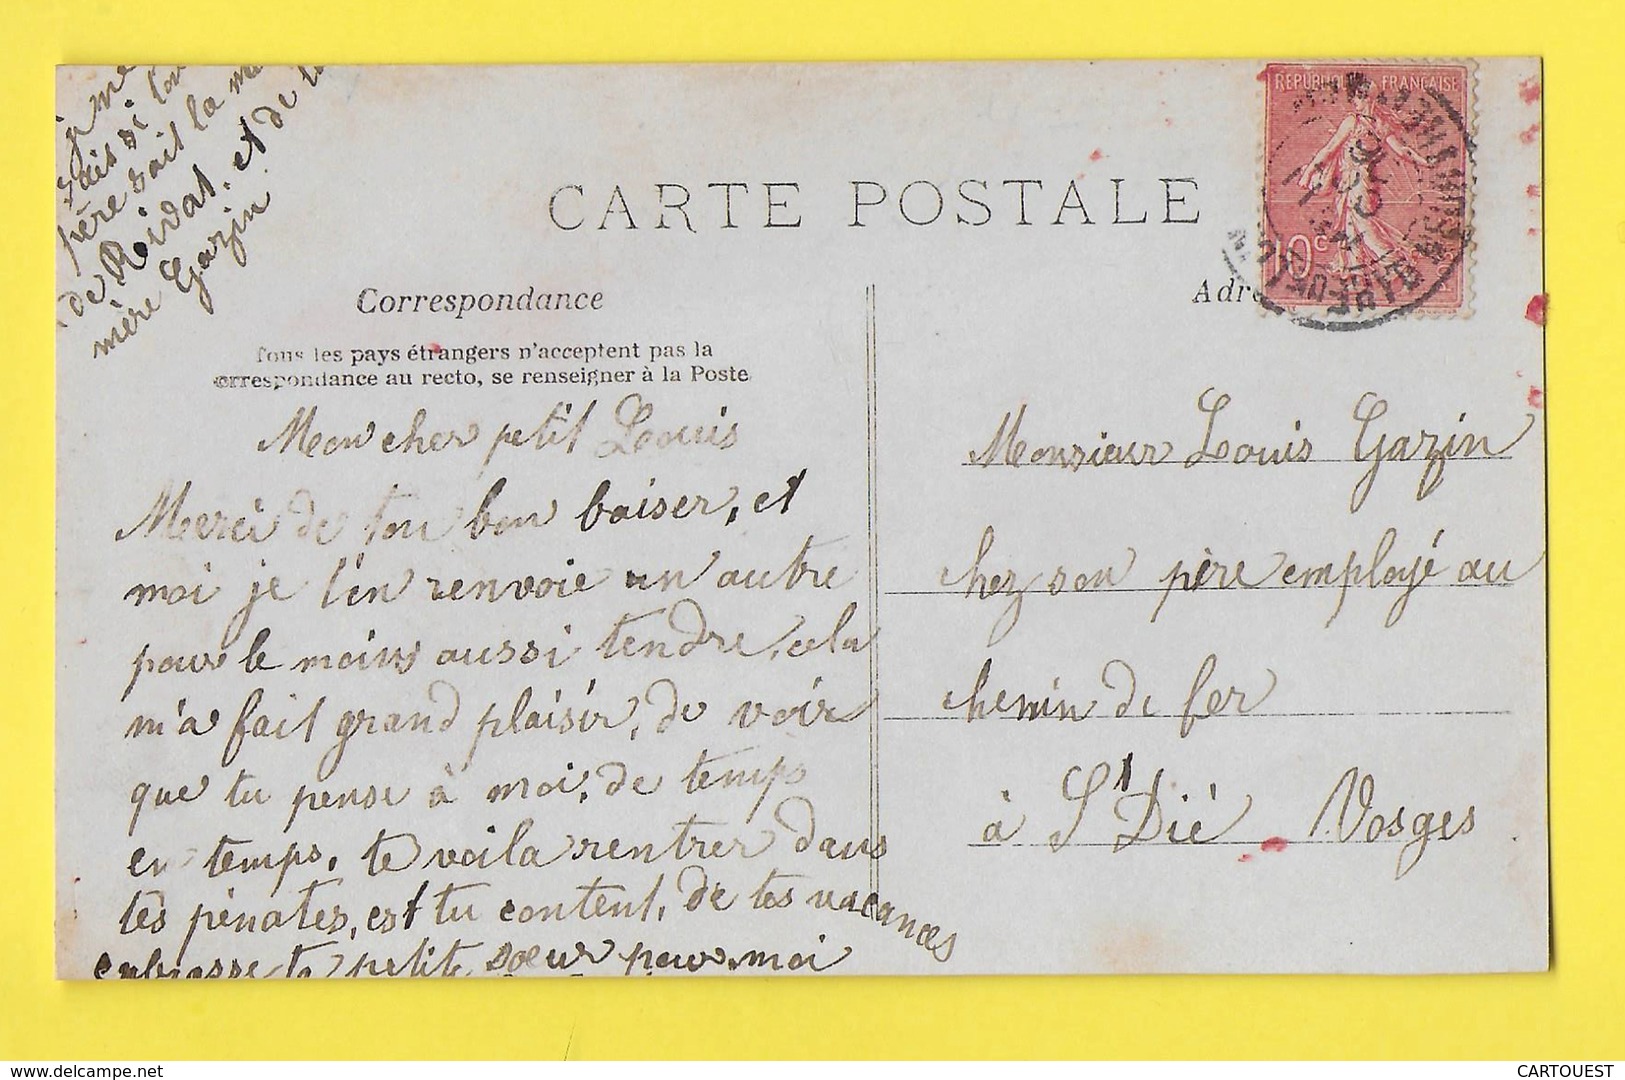 RÉPUBLIQUE FRANÇAISE
10c
CARTE POSTALE
Correspondance
Tous les pays étrangers n'acceptent pas la
correspondance au recto, se renseigner à la Poste
Adre
Mon cher petit Louis
Merci de ton bon baiser, et
moi je t'en renvoie un autre
pour le moins aussi tendre, cela
m'a fait grand plaisir, de voir
que tu pense à moi, de temps
en temps, te voila rentrer dans
tes pénates, est tu content, de tes vacances
enbrasse ta petite sœur pour moi
je me
sais si ton
père sait la
de Roidot et de
mère Gazin
Monsieur Louis Gazin
chez son père employé au
chemin de fer
à St Dié Vosges
delcampe.net
CARTOUEST